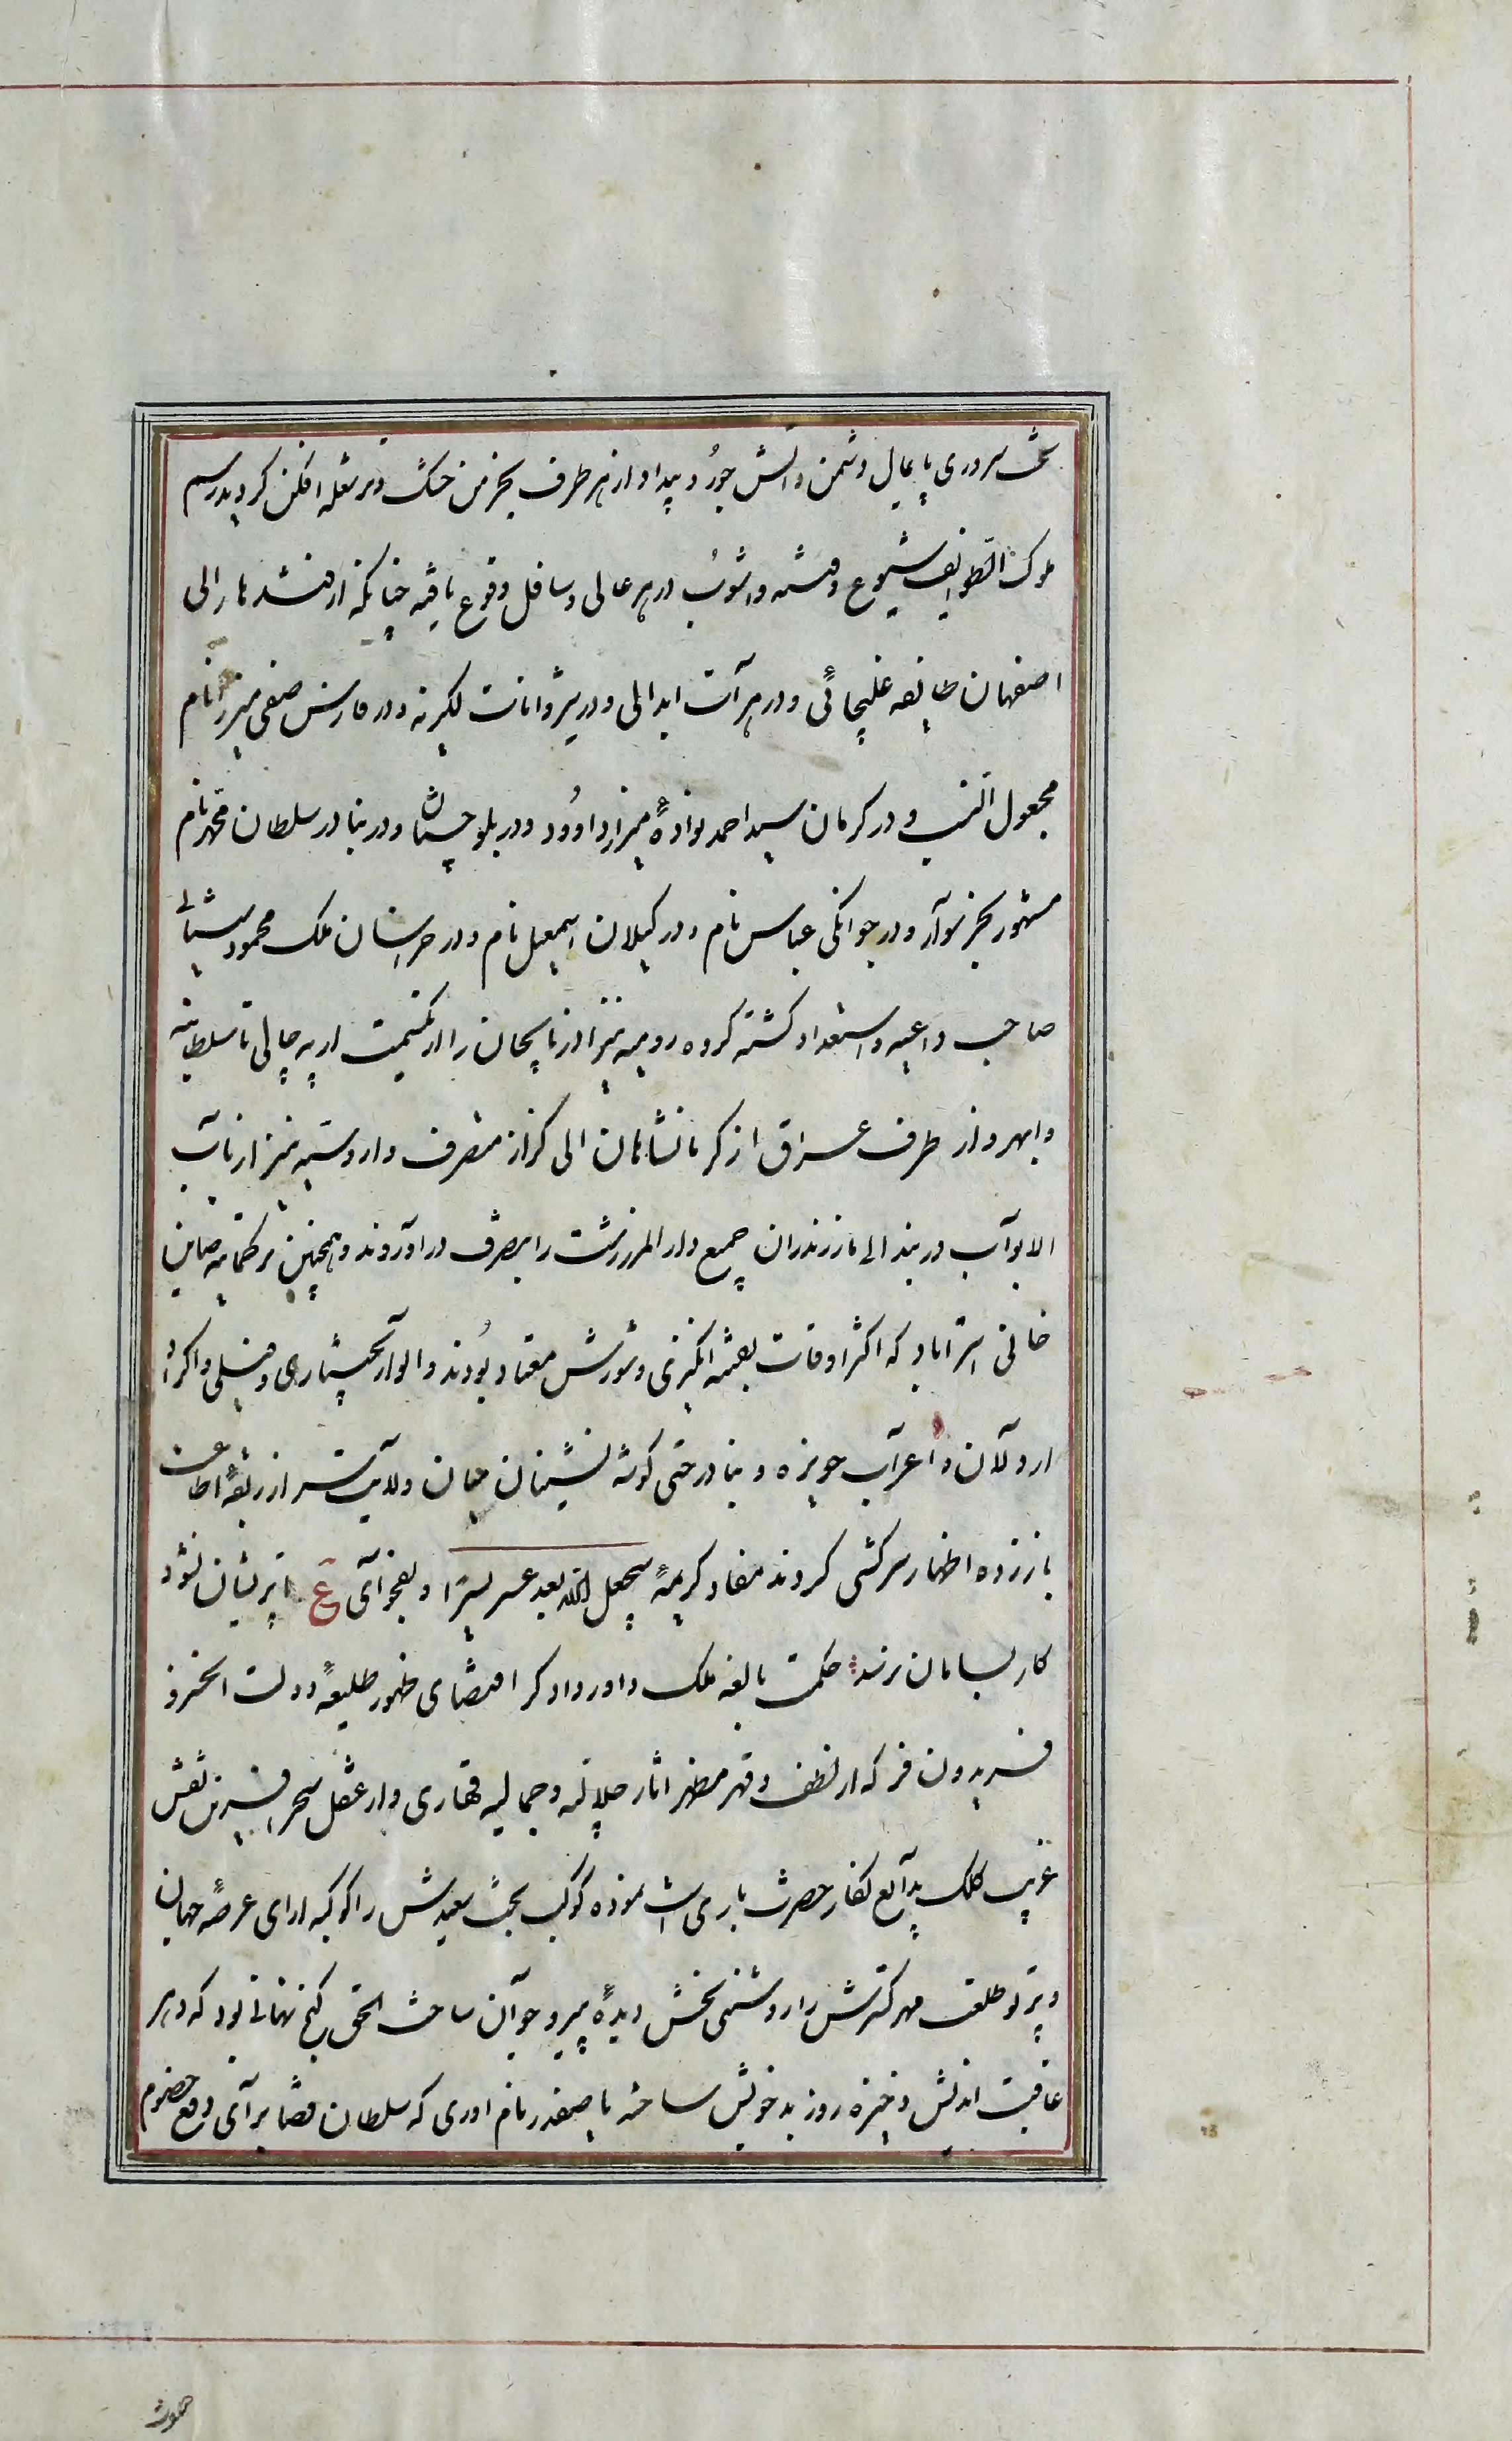 سخت سروری پایمال دشمن و آتش جور و بیداد از هر طرف بخرمن خشک و تر شعله افکن کردید رسم
ملوک الطوایف شیوع و فتنه و اشوب در هر عالی و سافل وقوع یافته چنانکه از قندهار الی
اصفهان طایفه غلیجائی و در هرآت ابدالی و در شروانات لکزیه و در فارس صفی میرزا نام
مجعول النسب و در کرمان سید احمد نوادهٔ میرزا داوود و در بلوچستان و در بنادر سلطان محمد نام
مشهور بخر سوار و در جوانکی عباس نام و در کیلان اسمعیل نام و در خراسان ملک محمود سیستانی
صاحب داعیه و استعداد کشته کروه رومیه نیز اذربایجان را از یکسمت ارپه چایی تا سلطانیه
و ابهر و از طرف عراق از کرمانشاهان الی کزاز متصرف و اروسیه نیز از باب
الابوآب دربند الی مازندران جمیع دار المرز رشت را بتصرف در اوردند و همچنین ترکمانیه صاین
خانی استراباد که اکثر اوقات بفتنه انکیزی و شورش معتاد بودند و الوار بختیاری و فیلی و اکراد
اردلان و اعرآب حویزه و بنادر حتی کوشه نشینان همان ولآیت سر از ربقهٔ اطاعت
باز زده اظهار سرکشی کردند مفاد کریمهٔ سیجعل الله بعد عسر یسرا و بفحوآی ع تا پریشان نشود
کار بسامان نرسد حکمت بالغه ملک داور دادکر اقتضای ظهور طلیعهٔ دولت انخسرو
فریدون فر که از لطف و قهر مظهر اثار جلالیه و جمالیه قهاری و از عقل سحر افرین نقش
غریب کلک بدآیع نکار حضرت باری است نموده کوکب بخت سعیدش را کوکبه ارای عرصهٔ جهان
و پرتو طلعت مهر کسترش را روشنی بخش دیدهٔ پیر و جوآن ساخت الحق کنج نهانی بود که دهر
عاقبت اندیش ذخیره روز بد خویش ساخته یا صفدر نام اوری که سلطان قضا برآی دفع خصوم